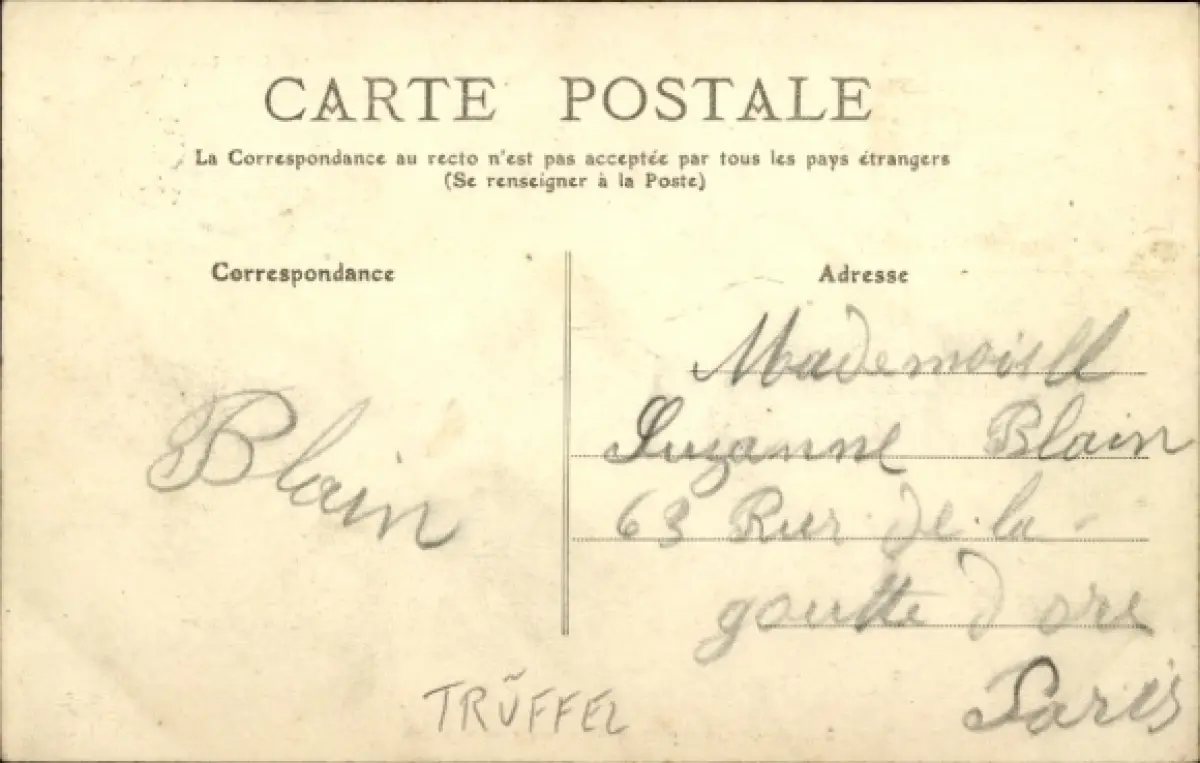 CARTE POSTALE
La Correspondance au recto n'est pas acceptée par tous les pays étrangers
(Se renseigner à la Poste)
Correspondance
Adresse
Blain
Mademoisell
Suzanne Blain
63 Rue de la
goutte d ore
Paris
TRŨFFEL